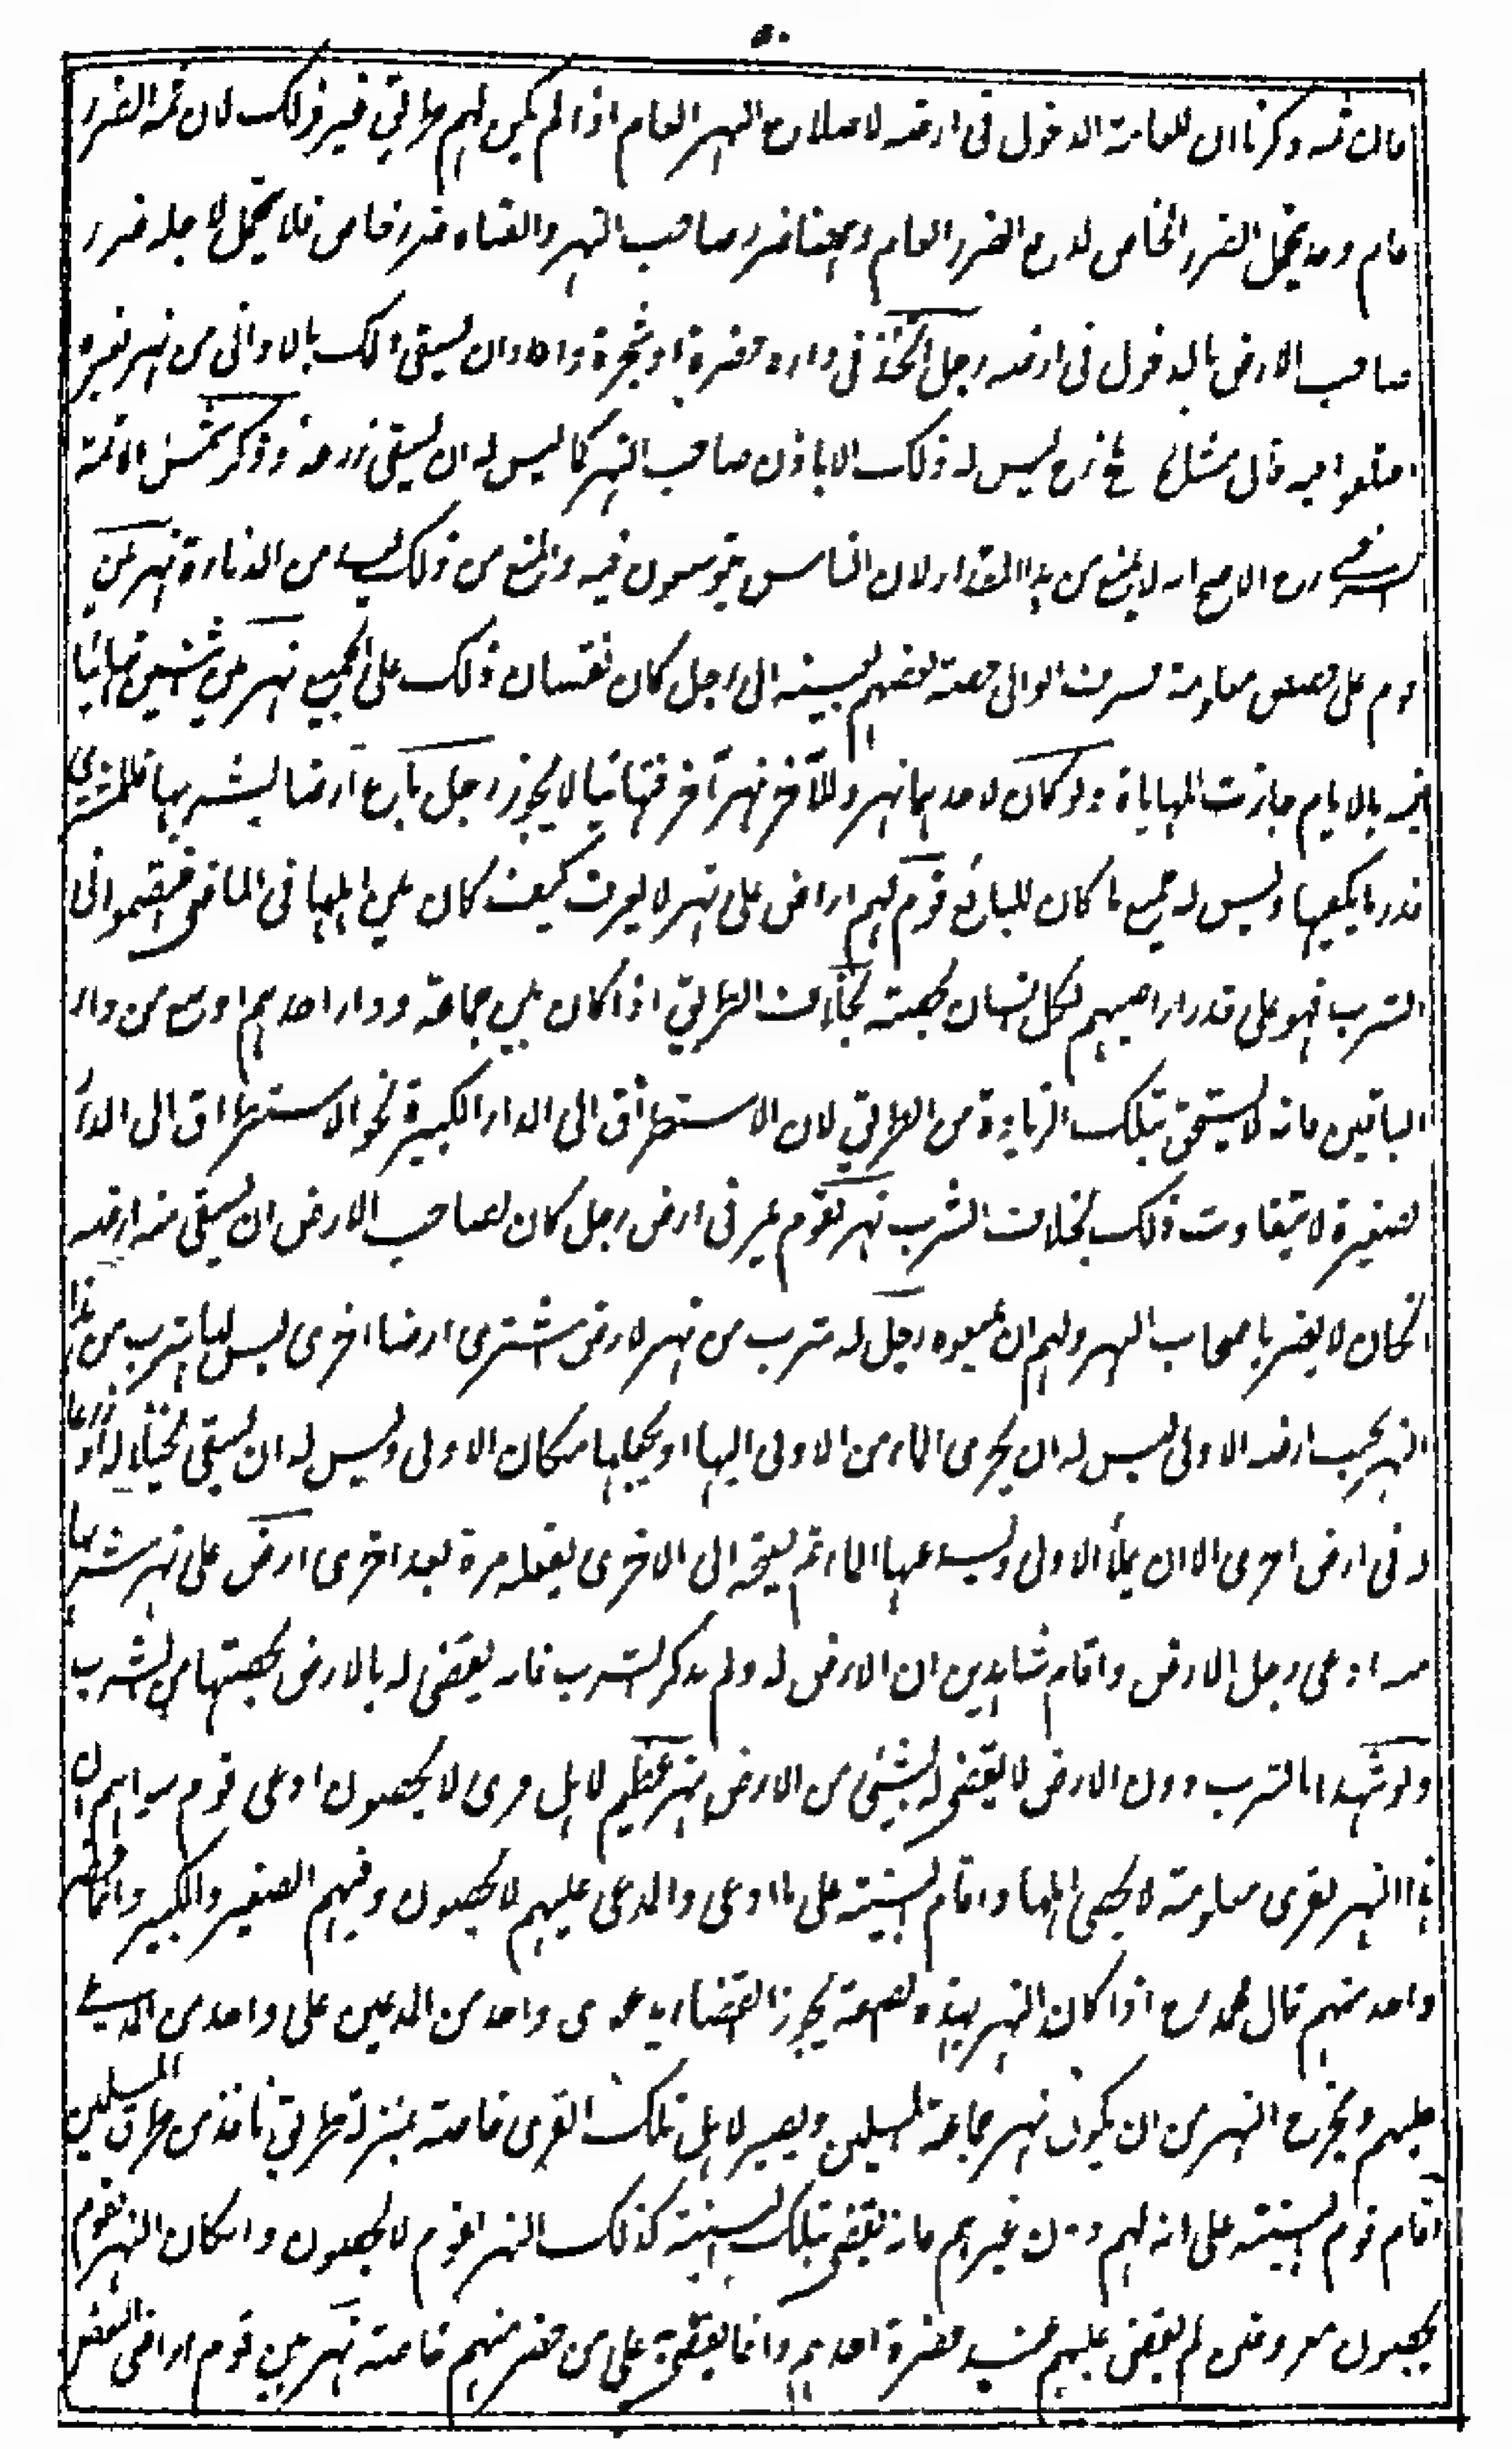 فان ثمه ذكرنا ان للعامة الدخول فى ارضه لاصلاح النهر العام اذا لم يكن لهم طريق غير ذلك لان ثمه الضرر
عام وقد يتحمل الضرر الخاص لدفع الضرر العام وههنا ضرر صاحب النهر والقناه ضرر خاص فلا يتحمل لاجله ضرر
صاحب الارض بالدخول فى ارضه رجل اتخذ فى داره خضرة او شجرة واراد ان يسقى ذلك بالاوانى من نهر غيره
اختلفوا فيه قال مشايخ بلخ رح ليس له ذلك الا باذن صاحب النهر كما ليس له ان يسقى زرعه وذكر شمس الائمة
السرخسى رح الاصح انه لا يمنع من هذا المقدار لان الناس يتوسعون فيه والمنع من ذلك يعد من الدناءة نهر بين
قوم على حصص معلومة فصرف الوالى حصة بعضهم لنفسه الى رجل كان نقصان ذلك على الجميع نهر بين شخصين تهائيا
فيه بالايام جازت المهاياة ولو كان لاحدهما نهر وللآخر نهر آخر فتهائيا لا يجوز رجل باع ارضا بشربها فللمشترى
قدر ما يكفيها وليس له جميع ما كان للبائع قوم لهم اراض على نهر لا يعرف كيف كان بين اهلها فى الماضى فاختصموا فى
الشرب فهو على قدر اراضيهم لكل انسان بحصته بخلاف الطريق اذا كان بين جماعة ودار احدهم اوسع من دار
الباقين فانه لا يستحق بتلك الزيادة من الطريق لان الاستطراق الى الدار الكبيرة نحو الاستطراق الى الدار
الصغيرة لا يتفاوت ذلك بخلاف الشرب نهر لقوم يمر فى ارض رجل كان لصاحب الارض ان يسقى منه ارضه
ان كان لا يضر باصحاب النهر ولهم ان يمنعوه رجل له شرب من نهر لارض فاشترى ارضا اخرى ليس لها شرب من هذا
النهر بجنب ارضه الاولى ليس له ان يجرى الماء من الاولى اليها او يجعلها مكان الاولى وليس له ان يسقى نخيلا له او زرعا
له فى ارض اخرى الا ان يملأ الاولى ويسد عنها الماء ثم يفتحه الى الاخرى يفعله مرة بعد اخرى ارض على نهر شربها
منه ادعى رجل الارض واقام شاهدين ان الارض له ولم يذكر الشرب فانه يقضى له بالارض بحصتها من الشرب
ولو شهدا بالشرب دون الارض لا يقضى له بشيئ من الارض نهر عظيم لاهل قرى لا يحصون ادعى قوم سواهم ان
هذا النهر لقرى معلومة لا يحصى اهلها واقام البينة على ما ادعى والمدعى عليهم لا يحصون وفيهم الصغير والكبير وانما حضر
واحد منهم قال محمد رح اذا كان النهر بهذه الصفة يجوز القضاء بدعوى واحد من المدعين على واحد من المدعى
عليهم ويخرج النهر من ان يكون نهر جماعة المسلمين ويصير لاهل تلك القرى خاصة بمنزلة طريق نافذ من طرق المسلمين
اقام قوم البينة على انه لهم دون غيرهم فانه يقضى بتلك البينة كذلك النهر لقوم لا يحصون وان كان النهر لقوم
يحصون معروفين لم يقض عليهم عند حضرة احدهم وانما يقضى على من حضر منهم خاصة نهر بين قوم اراضى البعض